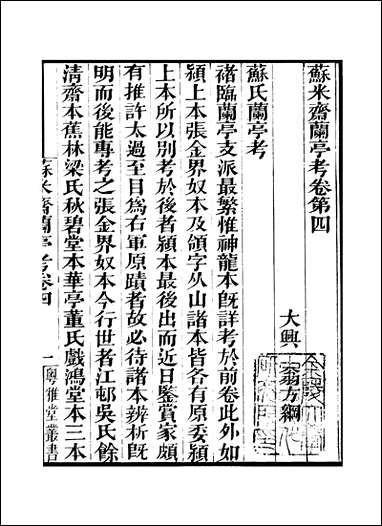 蘇米齋蘭亭考卷第四
大興翁方綱
蘇氏蘭亭考
褚臨蘭亭支派最繁惟神龍本既詳考於前卷此外如
潁上本張金界奴本及領字从山諸本皆各有原委潁
上本所以別考於後者潁本最後出而近日鑒賞家頗
有推許太過至目為右軍原蹟者故必待諸本辨析既
明而後能專考之張金界奴本今行世者江邨吳氏餘
清齋本蕉林梁氏秋碧堂本華亭董氏戲鴻堂本三本
蘇米齋蘭亭考卷四
一
粵雅堂叢書